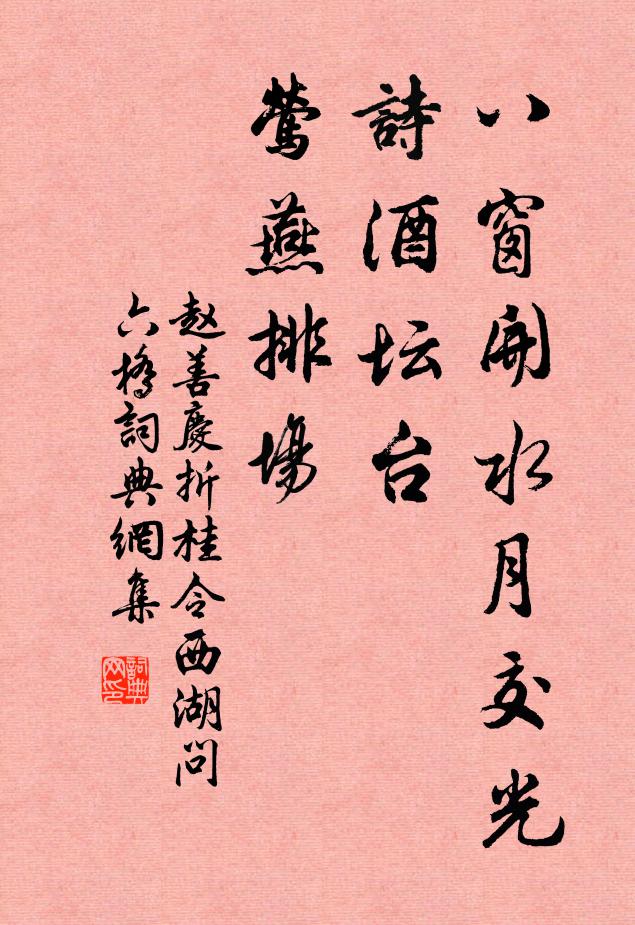 八窗開水月交光
詩酒坛台
鶯燕排場
赵善慶折桂令西湖問
六橋詞典網集
詞典
网印